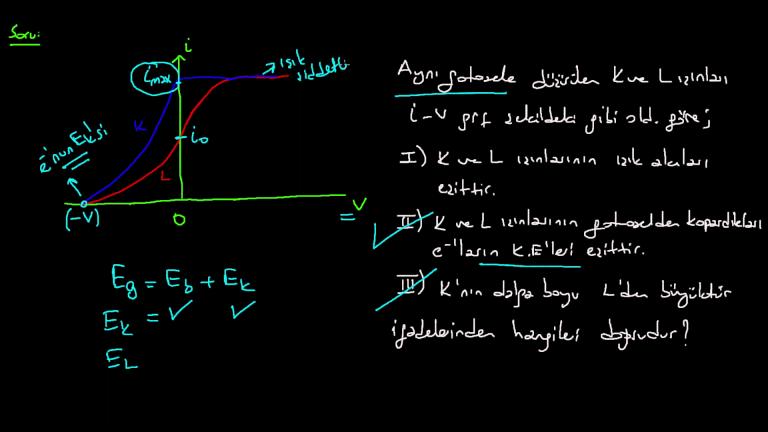 Soru:
i
imax
ışık
şiddeti
K
i₀
e⁻'nun Ek'si
L
(-V)
0
= V
Eg = Eb + Ek
EK = ✓ ✓
EL
Aynı fotosele düşürülen K ve L ışınları
i-V grf şekildeki gibi old. göre;
I) K ve L ışınlarının ışık akıları
eşittir.
II) K ve L ışınlarının fotoselden kopardıkları
e⁻'ların K.E'leri eşittir.
III) K'nın dalga boyu L'den büyüktür
ifadelerinden hangileri doğrudur?